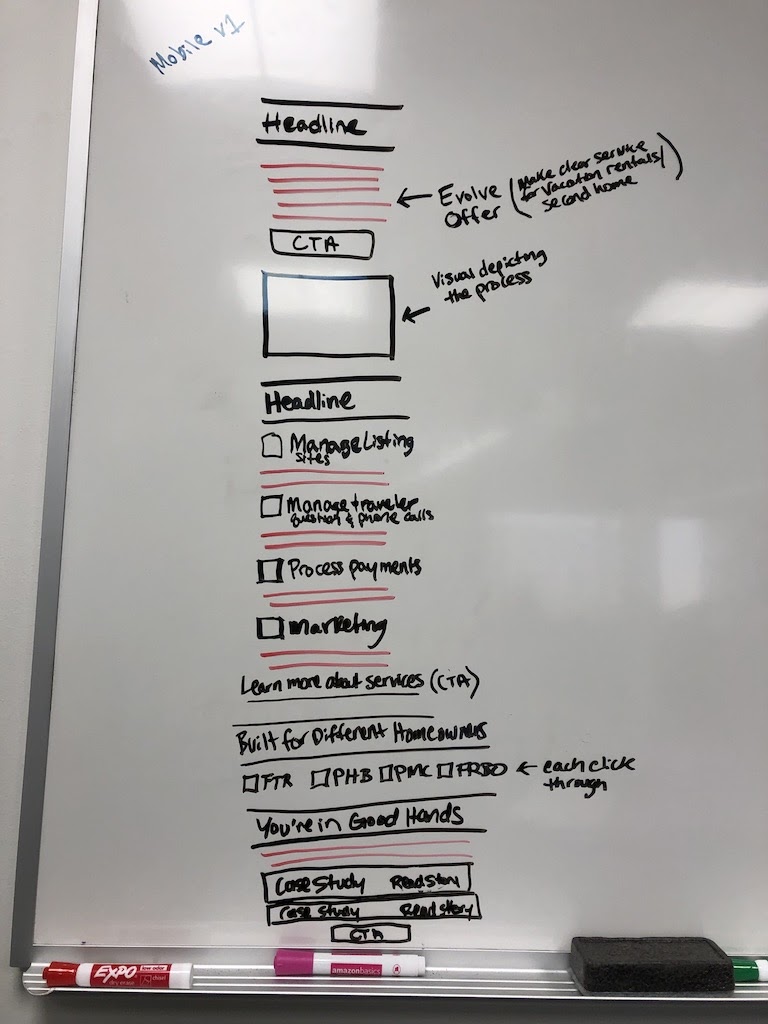 Mobile v1
Headline
Evolve
Offer
(Make clear service
for vacation rentals/
second home)
CTA
Visual depicting
the process
Headline
Manage Listing
sites
Manage traveler
question & phone calls
Process payments
Marketing
Learn more about services (CTA)
Built for Different Homeowners
FTR PHB PMC FRBO
each click
through
You're in Good Hands
Case Study Read Story
Case Study Read Story
CTA
EXPO
low odor
dry erase
chisel
amazonbasics